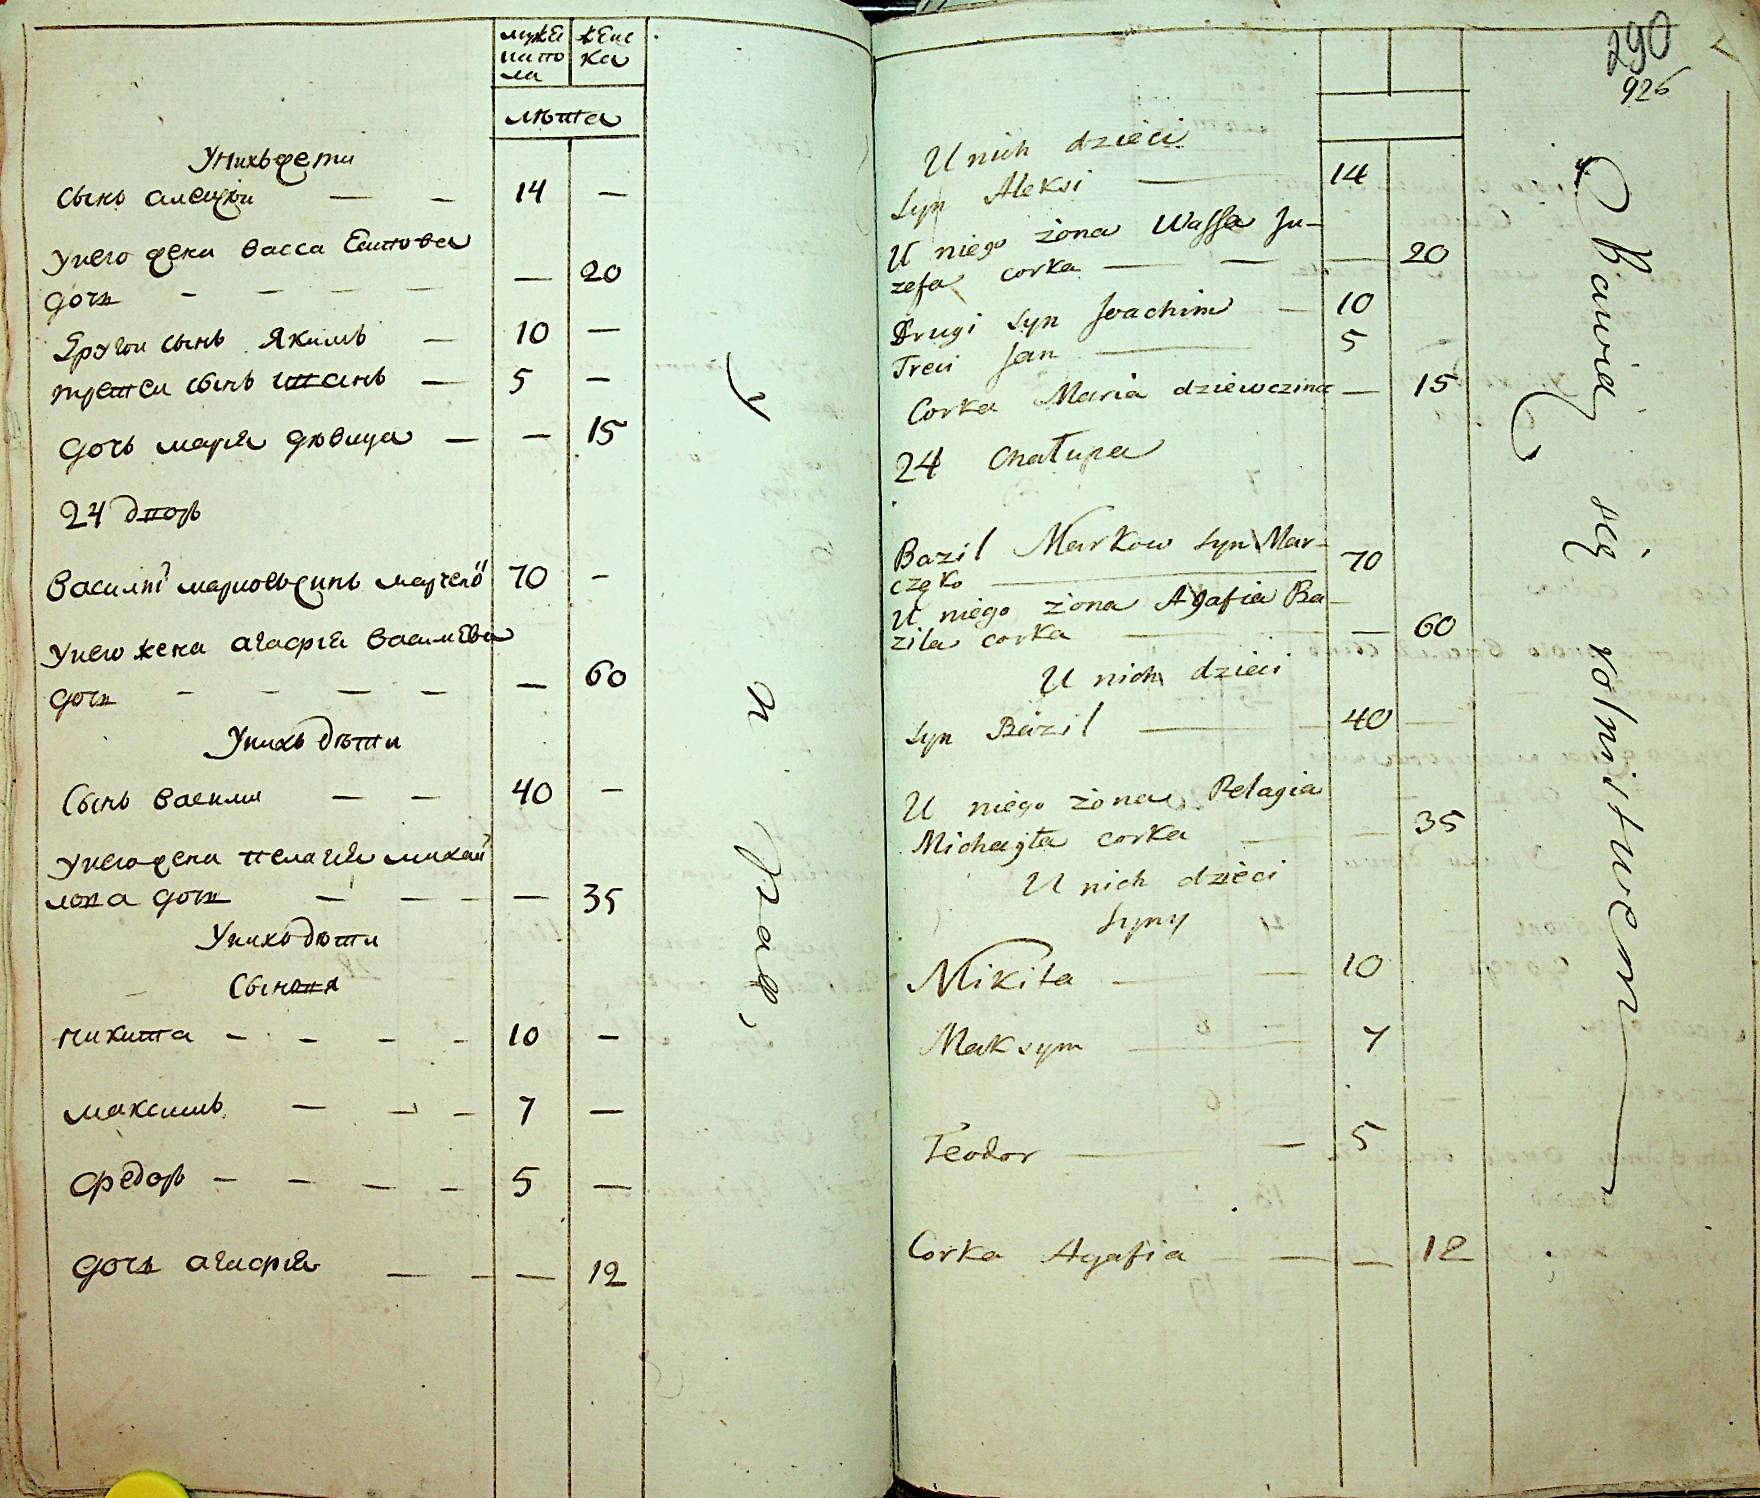 мужеска пола
женска
лѣта
У нихъ дети
Сынъ алексѣй — — 14 —
У него жена васса Еситова
дочь — — — — — 20
Другои сынъ Якимъ — 10 —
третеи сынъ Иванъ — 5 —
дочь марія дѣвица — — 15
24 дворъ
Василій марковъ синъ марче 70 —
У него жена агафія василева
дочь — — — — — 60
У нихъ дѣти
Сынъ василии — — 40 —
У него жена пелагия михай
лова дочь — — — — 35
У нихъ дѣти
Сыновя
никита — — — — 10 —
максимъ — — — 7 —
федоръ — — — — 5 —
дочь агафія — — — 12
290
926
U nich dzieci
Syn Aleksi — 14
U niego żona Wassa Ju-
zefa corka — — — 20
Drugi syn Joachim — 10
Treci Jan — 5
Corka Maria dziewczina — 15
24 Chałupa
Bazil Markow syn Mar-
częko — 70
U niego żona Agafia Ba-
zila corka — — 60
U nich dzieci
Syn Bazil — 40 —
U niego żona Pelagia
Michayła corka — — 35
U nich dzieci
Syny
Mikita — — 10
Maksym — 7
Teodor — — 5
Corka Agafia — — — 12
Bawią się rolnistwem